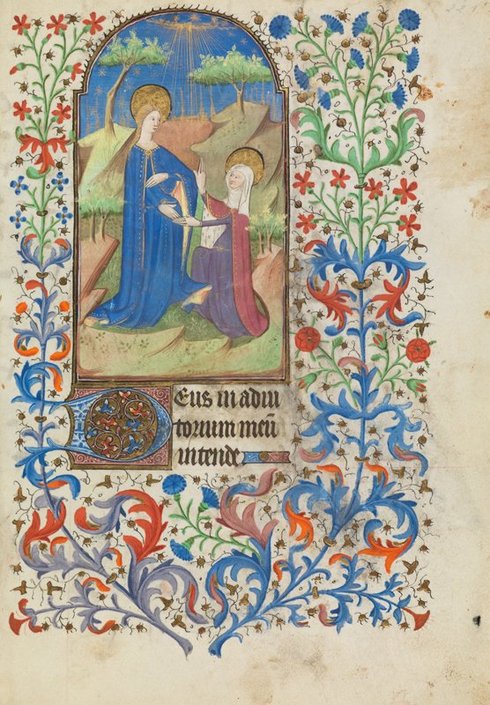 Deus in adiu
torium meū
intende